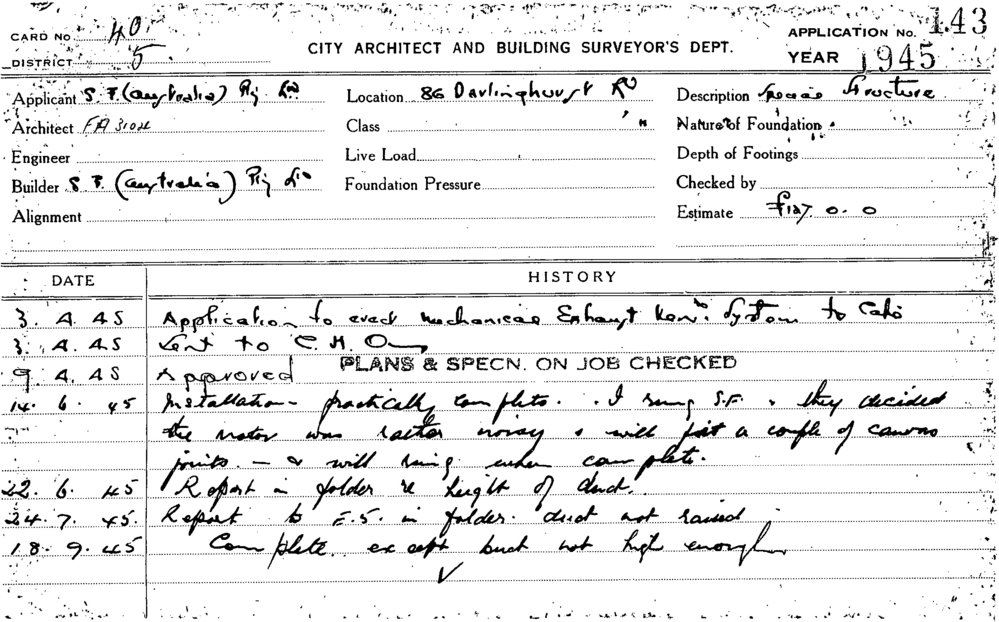 CARD No. 40. APPLICATION No. 143
DISTRICT 5. CITY ARCHITECT AND BUILDING SURVEYOR'S DEPT. YEAR 1945
Applicant S. F. (Australia) Pty Ltd Location 86 Darlinghurst Rd Description Special Structure
Architect FA 3104 Class " Nature of Foundation
Engineer Live Load Depth of Footings
Builder S. F. (Australia) Pty Ltd Foundation Pressure Checked by
Alignment Estimate £127. 0. 0
DATE HISTORY
3. 4. 45 Application to erect mechanical Exhaust System to Cafe
3. 4. 45 Sent to C. H. O.
9 4. 45 Approved PLANS & SPECN. ON JOB CHECKED
14. 6. 45 Installation practically complete. I rung S.F. & they decided
the motor was rather noisy & will put a couple of canvas
joints. — & will ring when complete.
22. 6. 45 Report in folder re height of duct.
24. 7. 45. Report to E.S. in folder. duct not raised
18. 9. 45 Complete except duct not high enough